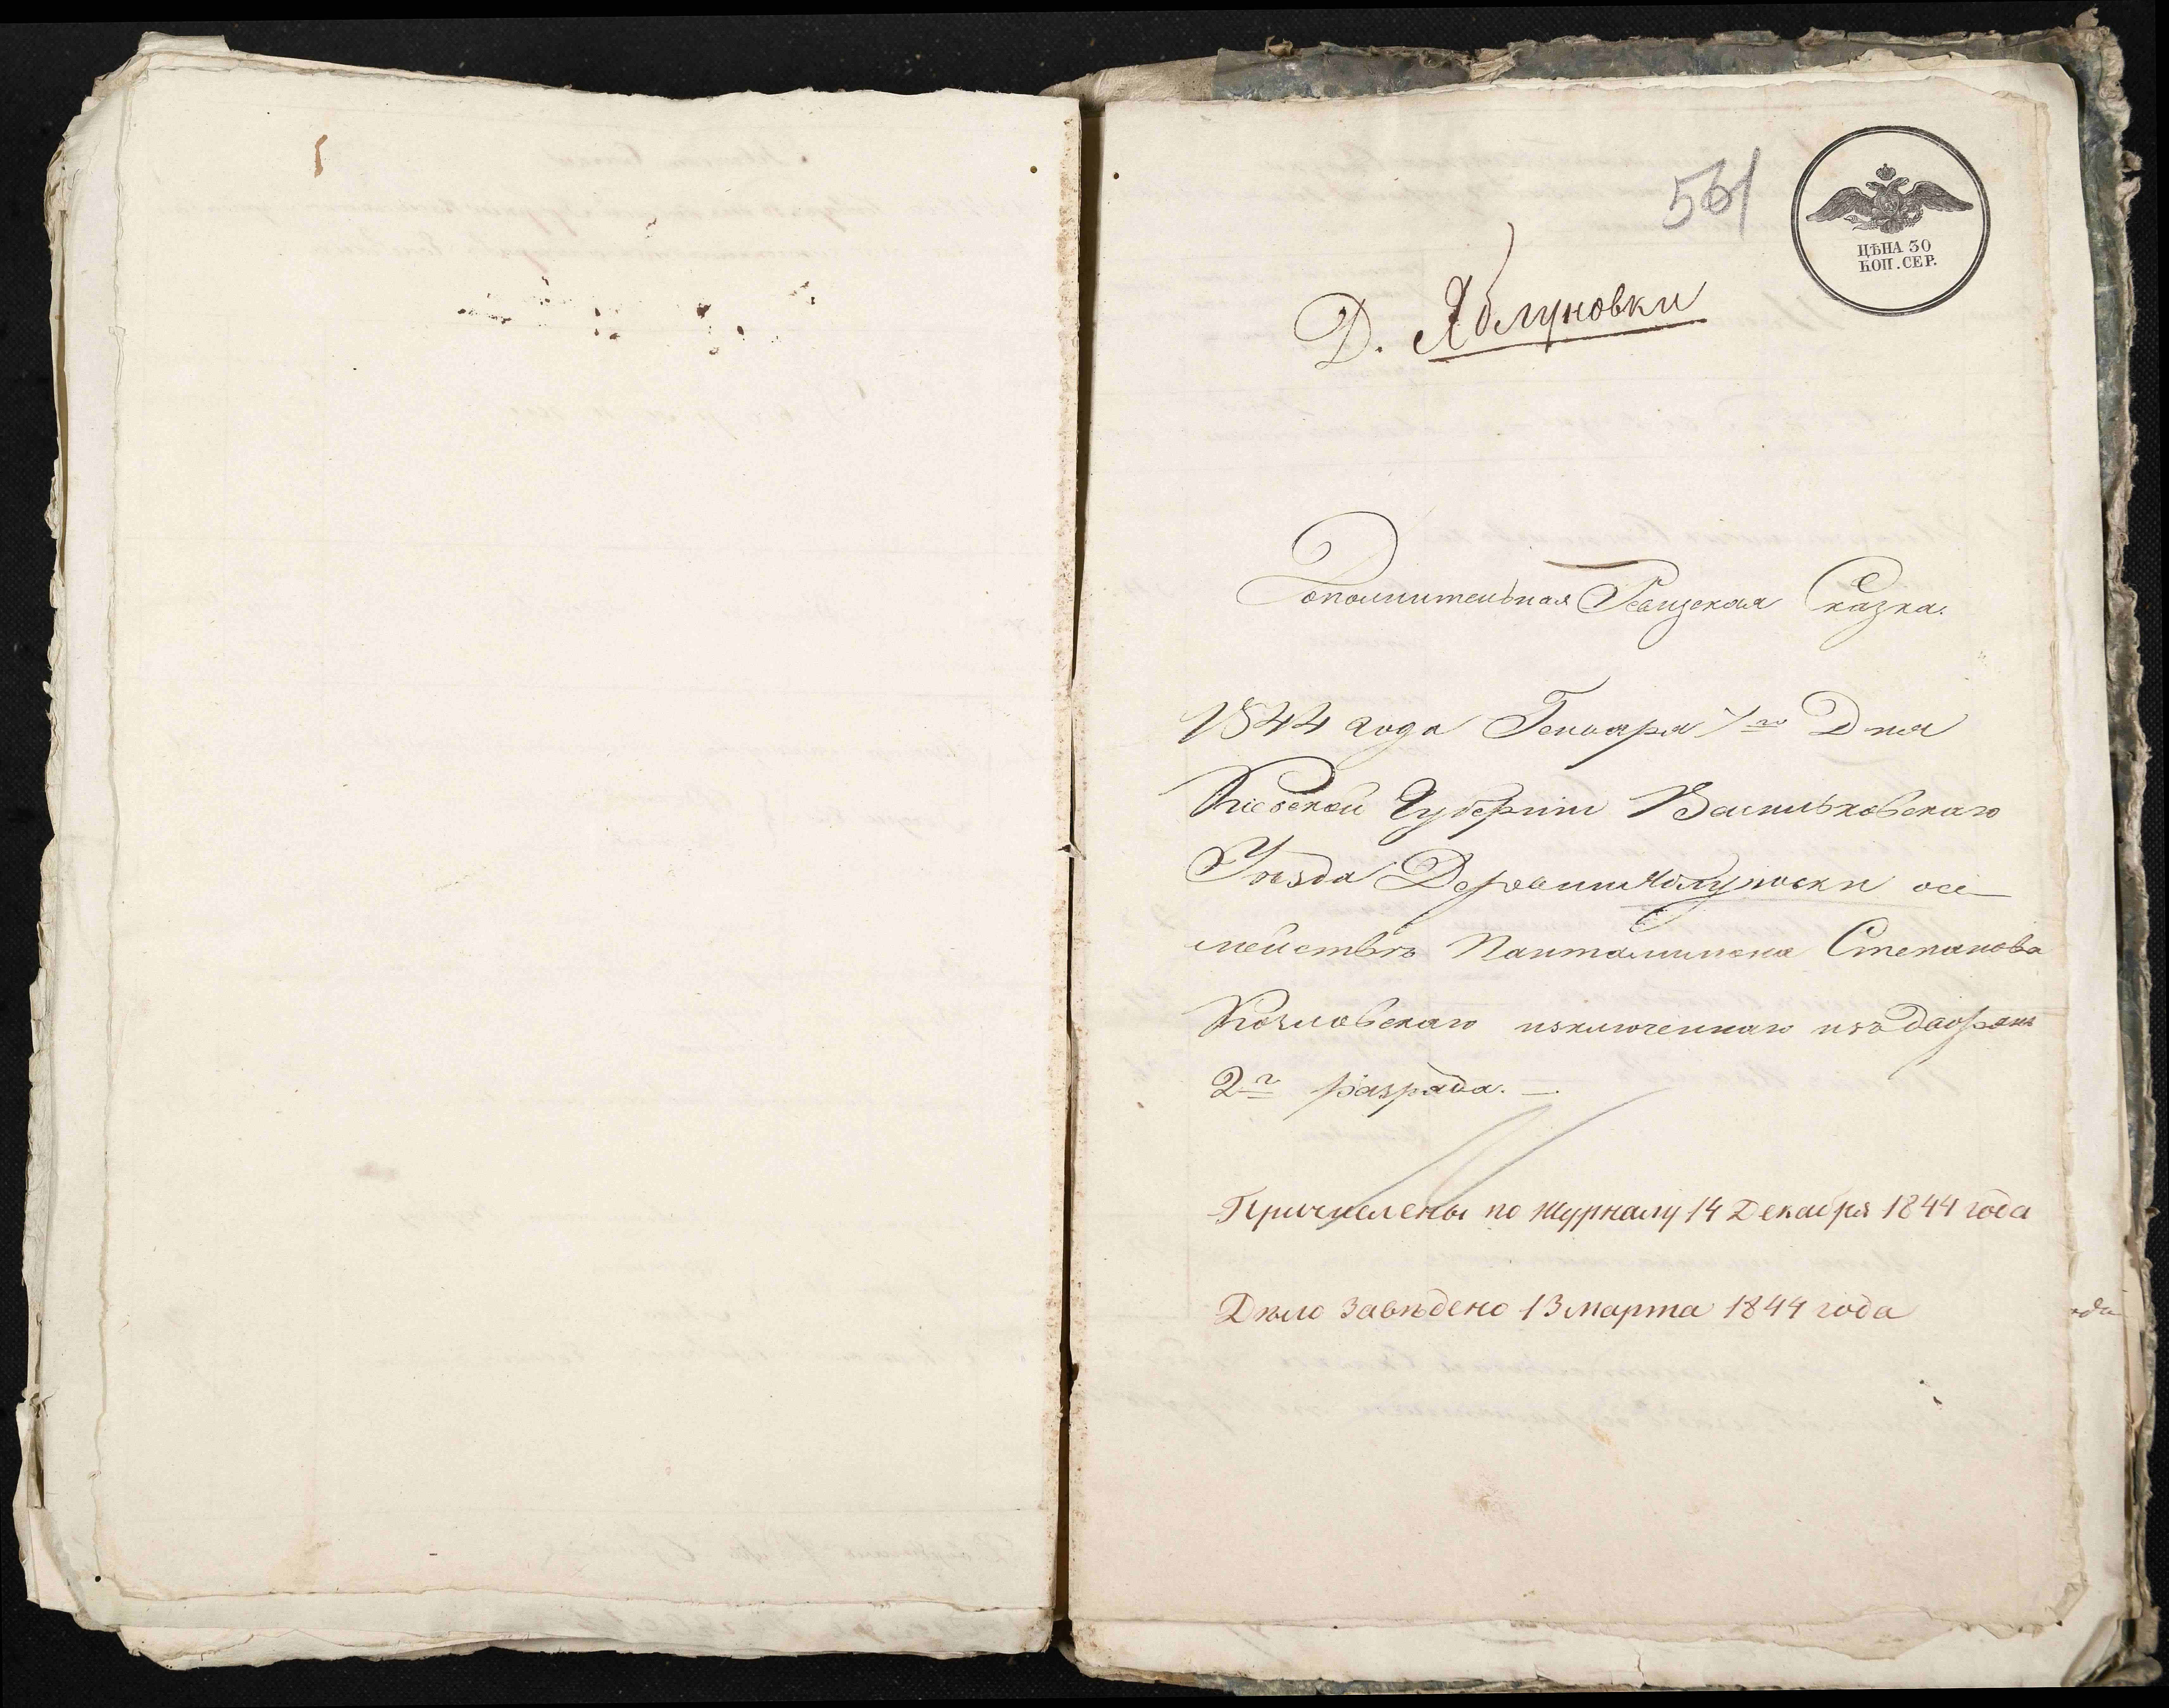 561
ЦѢНА 30
КОП. СЕР.
Д. Яблуновки
Дополнительная Ревизская Сказка.
1844 года Генваря 7го Дня
Кіевской Губерніи Васильковскаго
Уѣзда Деревни Яблуновки о се-
мействѣ Панталимона Степанова
Козловскаго изключеннаго изъ дворянъ
2го разряда. —
Причислены по журналу 14 Декабря 1844 года
Дѣло завѣдено 13 марта 1844 года